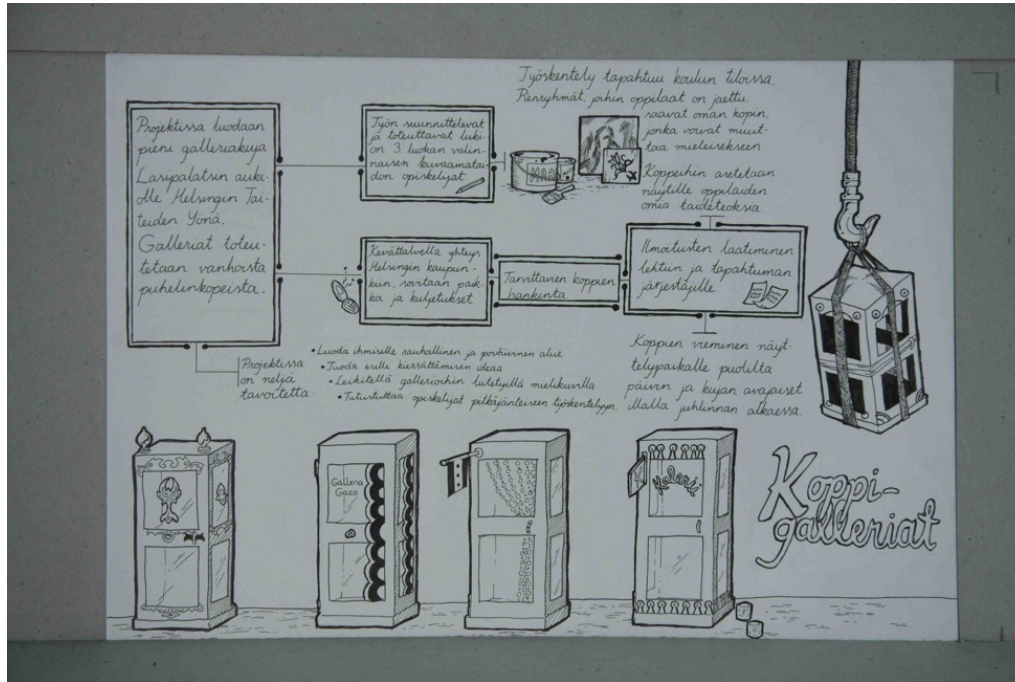 Projektissa luodaan
pieni galleriakuja
Lasipalatsin auki-
olle Helsingin Tai-
teiden Yönä.
Galleriat toteu-
tetaan vanhoista
puhelinkopeista.
Työn suunnittelevat
ja toteuttavat luki-
on 3. luokan valin-
naisen kuvaamatai-
don opiskelijat.
Työskentely tapahtuu koulun tiloissa.
Pienryhmät, joihin oppilaat on jaettu,
saavat oman kopin,
jonka voivat muut-
taa mieleisekseen.
Koppeihin asetetaan
näytille oppilaiden
omia taideteoksia.
MAA
Kevättalvella yhteys
Helsingin kaupun-
kiin, sovitaan paik-
ka ja kuljetukset
Tarvittavien koppien
hankinta.
Ilmoitusten laatiminen
lehtiin ja tapahtuman
järjestäjille.
Koppien vieminen näyt-
telypaikalle puolilta
päivin ja kujan avajaiset
illalla juhlinnan alkaessa.
Projektissa
on neljä
tavoitetta.
• Luoda ihmisille rauhallinen ja positiivinen alue
• Tuoda esille kierrättämisen ideaa
• Leikitellä gallerioihin liitetyillä mielikuvilla
• Tutustuttaa opiskelijat pitkäjänteiseen työskentelyyn.
Galleria
Gazo
Galleri
Koppi-
galleriat